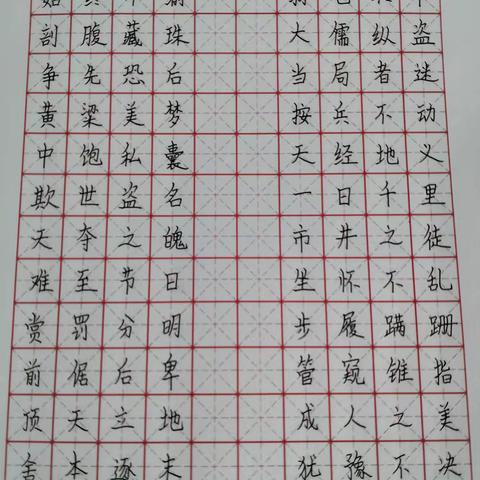 剖腹藏珠 大儒纵盗
争先恐后 当局者迷
黄粱美梦 按兵不动
中饱私囊 天经地义
欺世盗名 一日千里
天夺之魄 市井之徒
难至节日 坐怀不乱
赏罚分明 步履蹒跚
前倨后卑 管窥锥指
顶天立地 成人之美
舍本逐末 犹豫不决